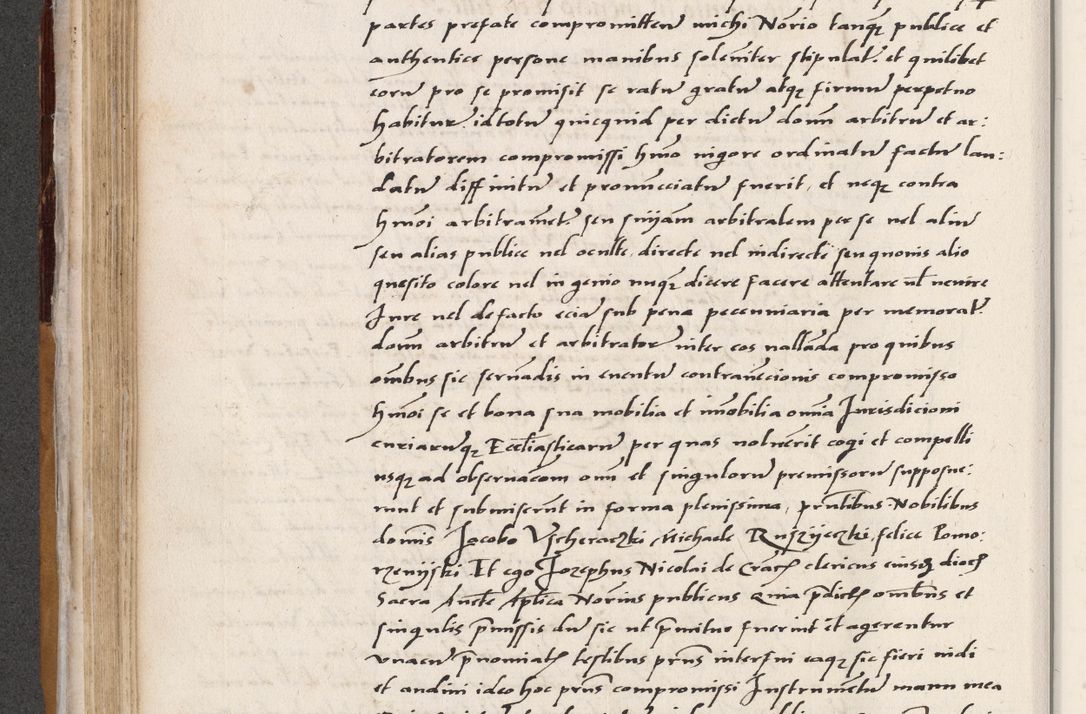 partes prefate compromitten̄ michi Nōrio tanq̄ȝ publice et
authentice persone manibus solemniter stipulat̄. et quilibet
eorū pro se promisit se ratū gratū atqȝ firmū perpetuo
habitur̄ id totū quicquid per dictū dom̄ arbitrū et ar:
bitratorem compromissi hm̄oi uigore ordinatū factū lau:
datū diffinitū et pronūcciatū fuerit, et neqȝ contra
hm̄oi arbitramēt̄. seu sn̄iam arbitralem per se uel aliū
seu alias publice uel oculte, directe uel indirecte seu quouis alio
quesito colore uel in genio nuqȝ dicere facere attentare ul̄ uenire
Jure uel de facto eciā sub pena pecunniaria per memorat̄.
dom̄ arbitrū et arbitratorē inter eos uallāda pro quibus
om̄bus sic seruādis in euentū contrauēcionis compromisso
hm̄oi se et bona sua mobilia et īmobilia om̄ia Jurisdicioni
curiarūqȝ Ecc̄liasticarū per quas uoluērit cogi et compelli
usqȝ ad obseruac̄om om̄ et singulorū premissorū supposue:
runt et submiserūt in forma plenissima, prn̄tibus Nobilibus
domīs Jacobo Vscheraczki Michaele Ruszyeczki, felice Pomo:
rzenijski Et ego Jozephus Nicolai de Crac̄ clericus eiusdē dioc̄
Sacra Aucte Ap̄lica Nōrius publicus Quia p̄dict̄ om̄ibus et
singulis p̄missis dū sic ut p̄mitᵗuo fuerint et agerentur
vnacū p̄nomiat̄ testibus prn̄s interfui eaqȝ sic fieri uidi
et audiui ideo hoc prn̄s compromissi Instrumētū manu mea